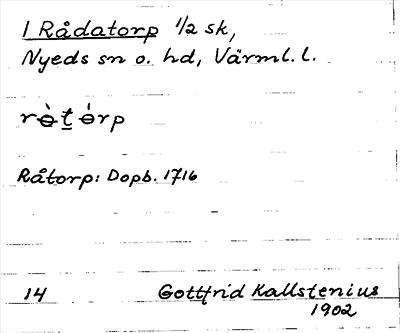 1 Rådatorp 1/2 sk,
Nyeds sn o. hd, Värml. l.
rɵ̀tɵ́rp
Råtorp: Dopb. 1716
14 Gottfrid Kallstenius
1902